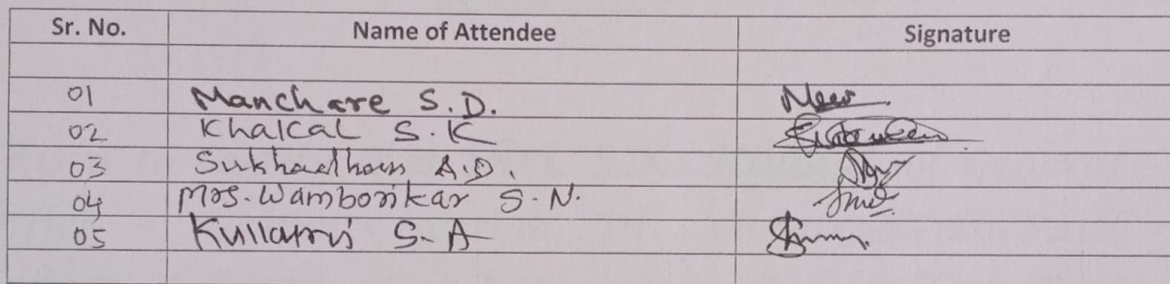 Sr. No. Name of Attendee Signature
01 Manchare S.D.
02 Khalcal S.K
03 Sukhadhan A.D.
04 Mrs. Wamborikar S.N.
05 S.A